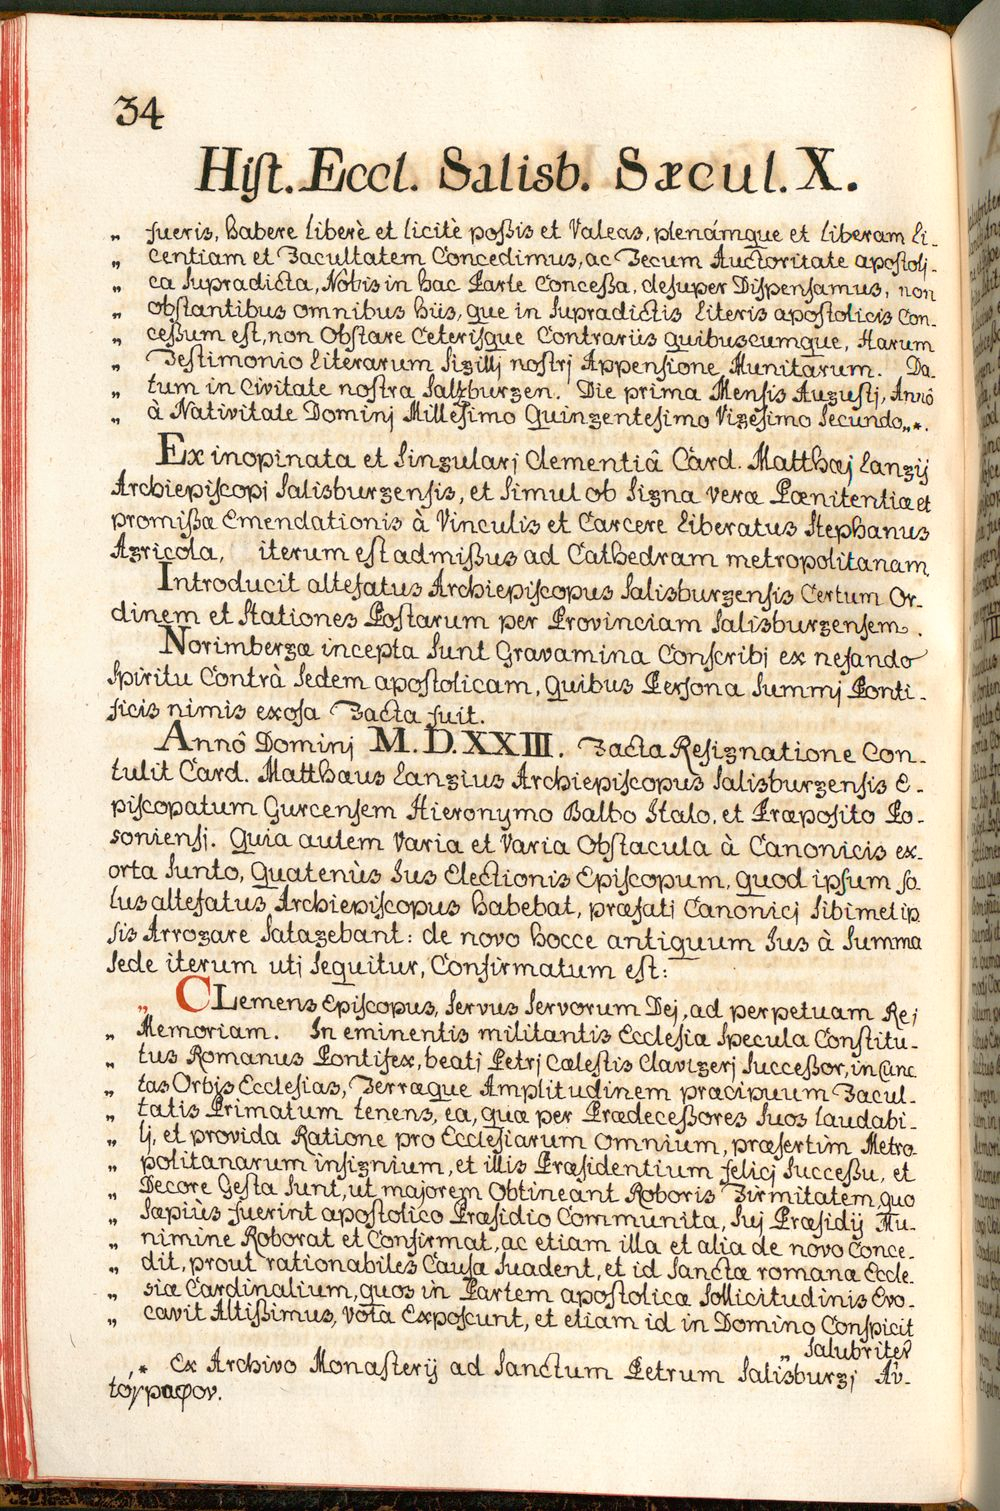 34
Hist. Eccl. Salisb. Sæcul. X.
„ fueris, habere liberè et licitè possis et Valeas, plenámque et liberam li-
„ centiam et Facultatem Concedimus, ac Tecum Auctoritate apostolj-
„ ca supradicta, Nobis in hac Parte Concessa, desuper Dispensamus, non
„ obstantibus omnibus hiis, que in supradictis literis apostolicis Con-
„ cessum est, non Obstare Ceterisque Contrariis quibuscumque, Harum
„ Testimonio literarum sigillj nostrj Appensione Munitarum. Da-
„ tum in Civitate nostra Saltzburgen. Die prima Mensis Augustj, Annô
„ à Nativitate Dominj Millesimo Quingentesimo Vigesimo Secundo„*.
Ex inopinata et singularj Clementiâ Card. Matthæj Langij
Archiepiscopi Salisburgensis, et simul ob signa veræ Pœnitentiæ et
promissæ Emendationis à Vinculis et Carcere liberatus Stephanus
Agricola, iterum est admissus ad Cathedram metropolitanam.
Introducit altefatus Archiepiscopus Salisburgensis Certum Or-
dinem et Stationes Postarum per Provinciam Salisburgensem.
Norimbergæ incepta sunt Gravamina Conscribj ex nefando
Spiritu Contrà Sedem apostolicam, quibus Persona Summj Ponti-
ficis nimis exosa Facta fuit.
Annô Dominj M.D.XXIII. Facta Resignatione Con-
tulit Card. Matthæus Langius Archiepiscopus Salisburgensis E-
piscopatum Gurcensem Hieronymo Balbo Italo, et Præposito Po-
soniensj. Quia autem Varia et Varia Obstacula à Canonicis ex-
orta sunto, Quatenùs Jus Electionis Episcopum, quod ipsum so-
lus altefatus Archiepiscopus habebat, præfati Canonicj sibimet ip-
sis Arrogare satagebant: de novo hocce antiquum Jus à Summa
Sede iterum utj sequitur, Confirmatum est:
„ CLemens Episcopus, servus servorum Dej, ad perpetuam Rej
„ Memoriam. In eminentis militantis Ecclesiæ Specula Constitu-
„ tus Romanus Pontifex, beatj Petrj Cælestis Clavigerj Successor, in Cunc-
„ tas Orbis Ecclesias, Terræque Amplitudinem præcipuum Facul-
„ tatis Primatum tenens, ea, quæ per Prædecessores suos laudabi-
„ lj, et provida Ratione pro Ecclesiarum Omnium, præsertim Metro-
„ politanarum insignium, et illis Præsidentium felicj Successu, et
„ Decore Gesta sunt, ut majorem Obtineant Roboris Firmitatem, quo
„ sæpiùs fuerint apostolico Præsidio Communita, suj Præsidij Mu-
„ nimine Roborat et Confirmat, ac etiam illa et alia de novo Conce-
„ dit, prout rationabiles Causæ suadent, et id sanctæ romanæ Eccle-
„ siæ Cardinalium, quos in Partem apostolicæ sollicitudinis Evo-
„ cavit Altissimus, vota Exposcunt, et etiam id in Domino Conspicit
„ salubriter
* Ex Archivo Monasterij ad Sanctum Petrum Salisburgj Αὐ-
τόγραφον.